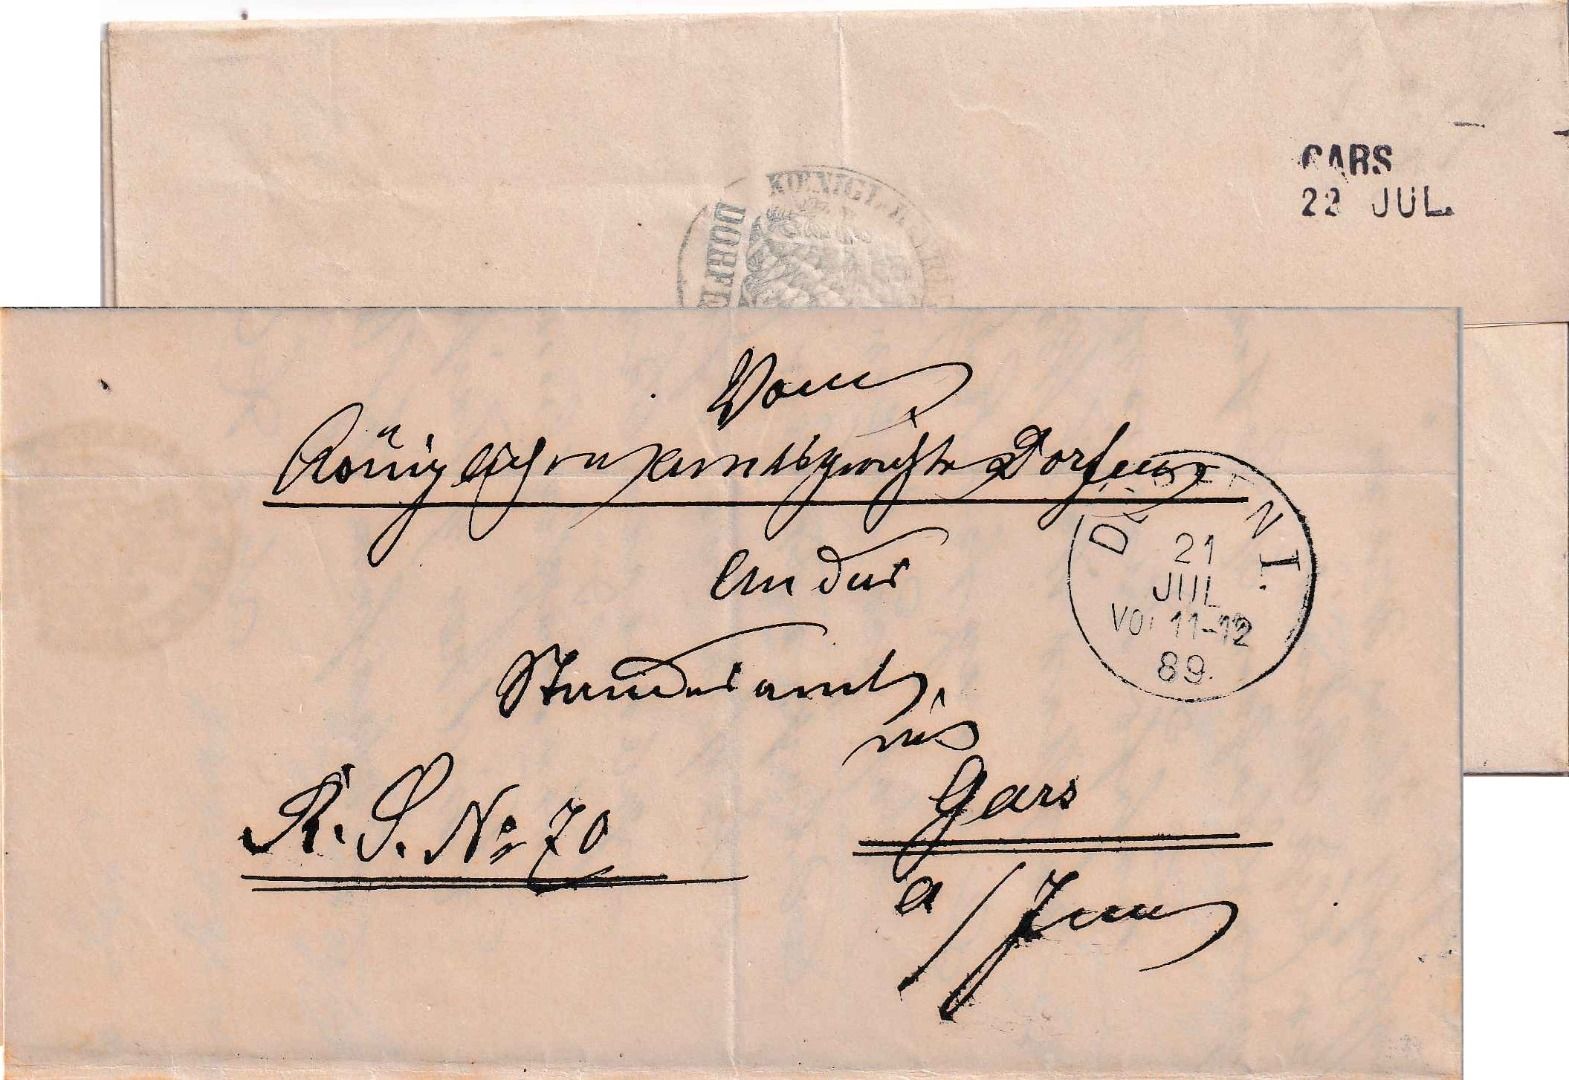 GARS
22 JUL.
KŒNIGL.
DORFE
Vom
Königlichen Amtsgerichte Dorfen
An das
Standesamt,
in
Gars
a/Inn
R. S. No 70
DORFEN I.
21
JUL
VOR 11-12
89.